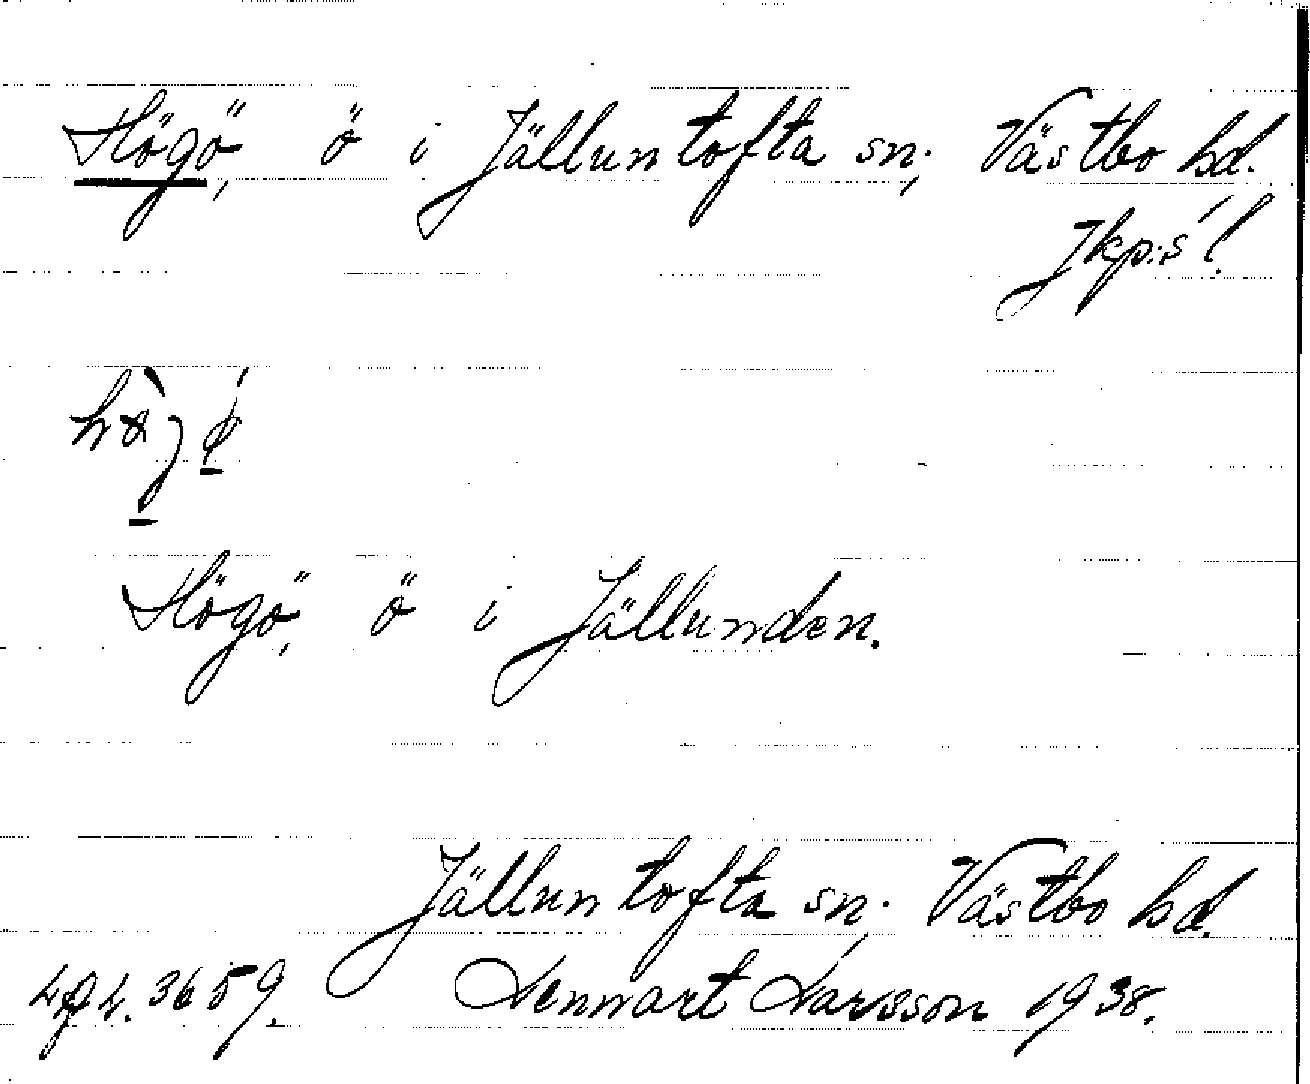 Högö, ö i Jälluntofta sn, Västbo hd.
Jkp:s l.
Högö, ö i Jällunden.
Jälluntofta sn. Västbo hd.
3659. Lennart Larsson 1938.